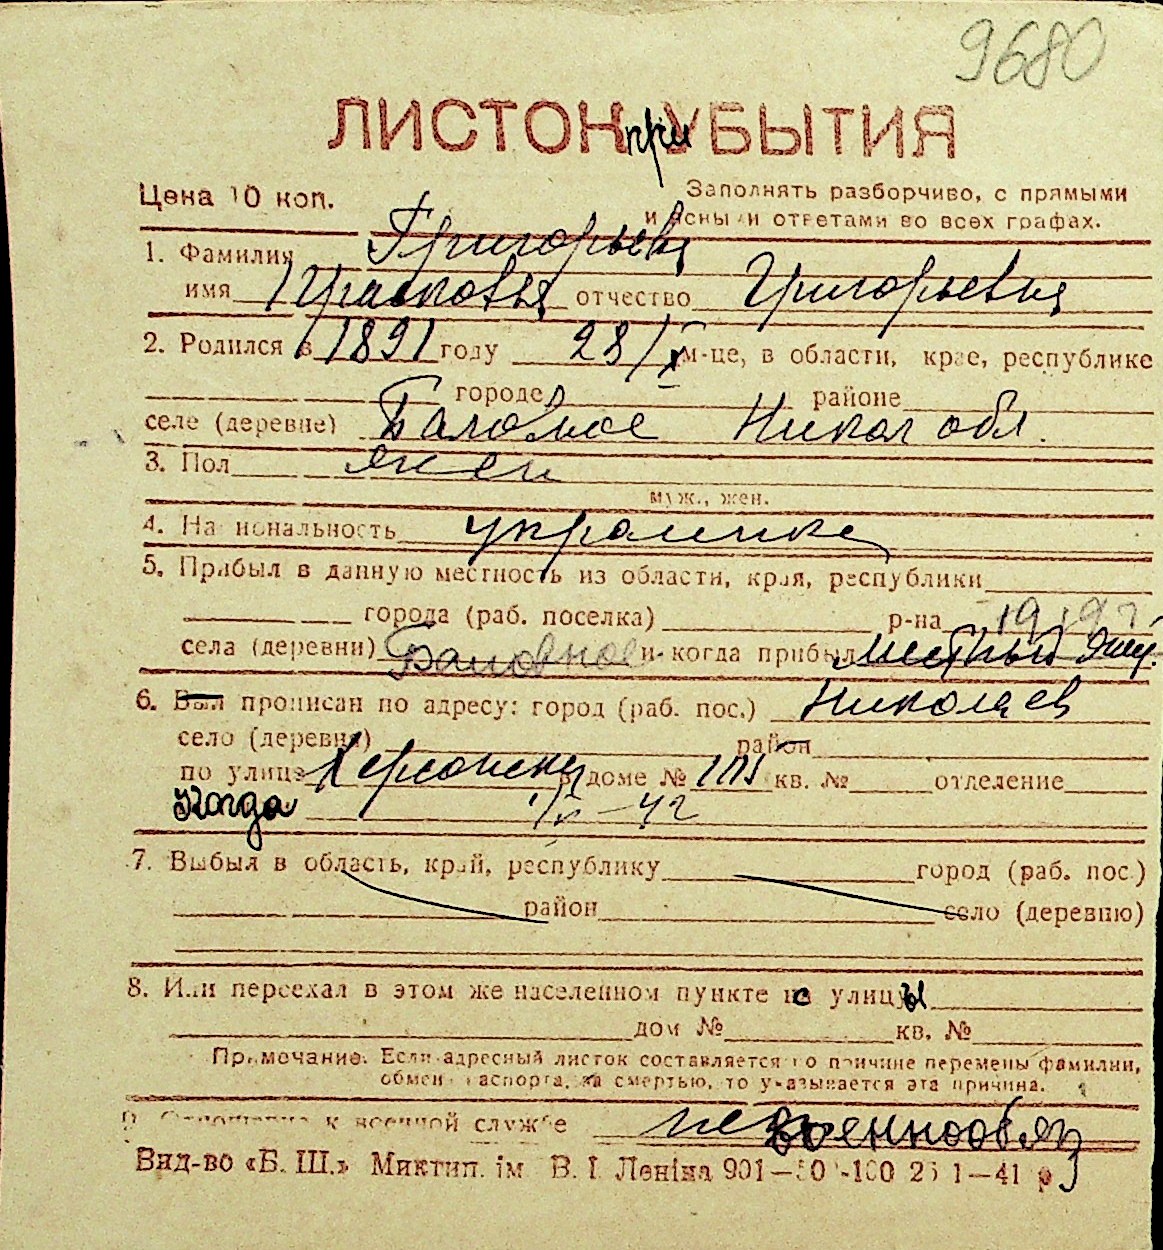 9680
ЛИСТОК приУБЫТИЯ
Цена 10 коп.
Заполнять разборчиво, с прямыми
и ясными ответами во всех графах.
1. Фамилия Григорьева
имя Прасковья отчество Григорьевна
2. Родился в 1891 году 28/X м-це, в области, крае, республике
городе районе
селе (деревне) Баловное Никол обл.
3. Пол жен
муж., жен.
4. Национальность украинка
5. Прибыл в данную местность из области, края, республики
города (раб. поселка) р-на
села (деревни) Баловное и когда прибыл местный
6. Был прописан по адресу: город (раб. пос.) Николаев
село (деревня) район
по улице Херсонск в доме № кв. № отделение
Когда
7. Выбыл в область, край, республику город (раб. пос.)
район село (деревню)
8. Или переехал в этом же населенном пункте с улицы
дом № кв. №
Примечание. Если адресный листок составляется по причине перемены фамилии,
обмена паспорта, за смертью, то указывается эта причина.
9. Отношение к военной службе невоеннообяз
Вид-во «Б. Ш.» Миктип. ім В. І. Леніна 901— 1—41 р